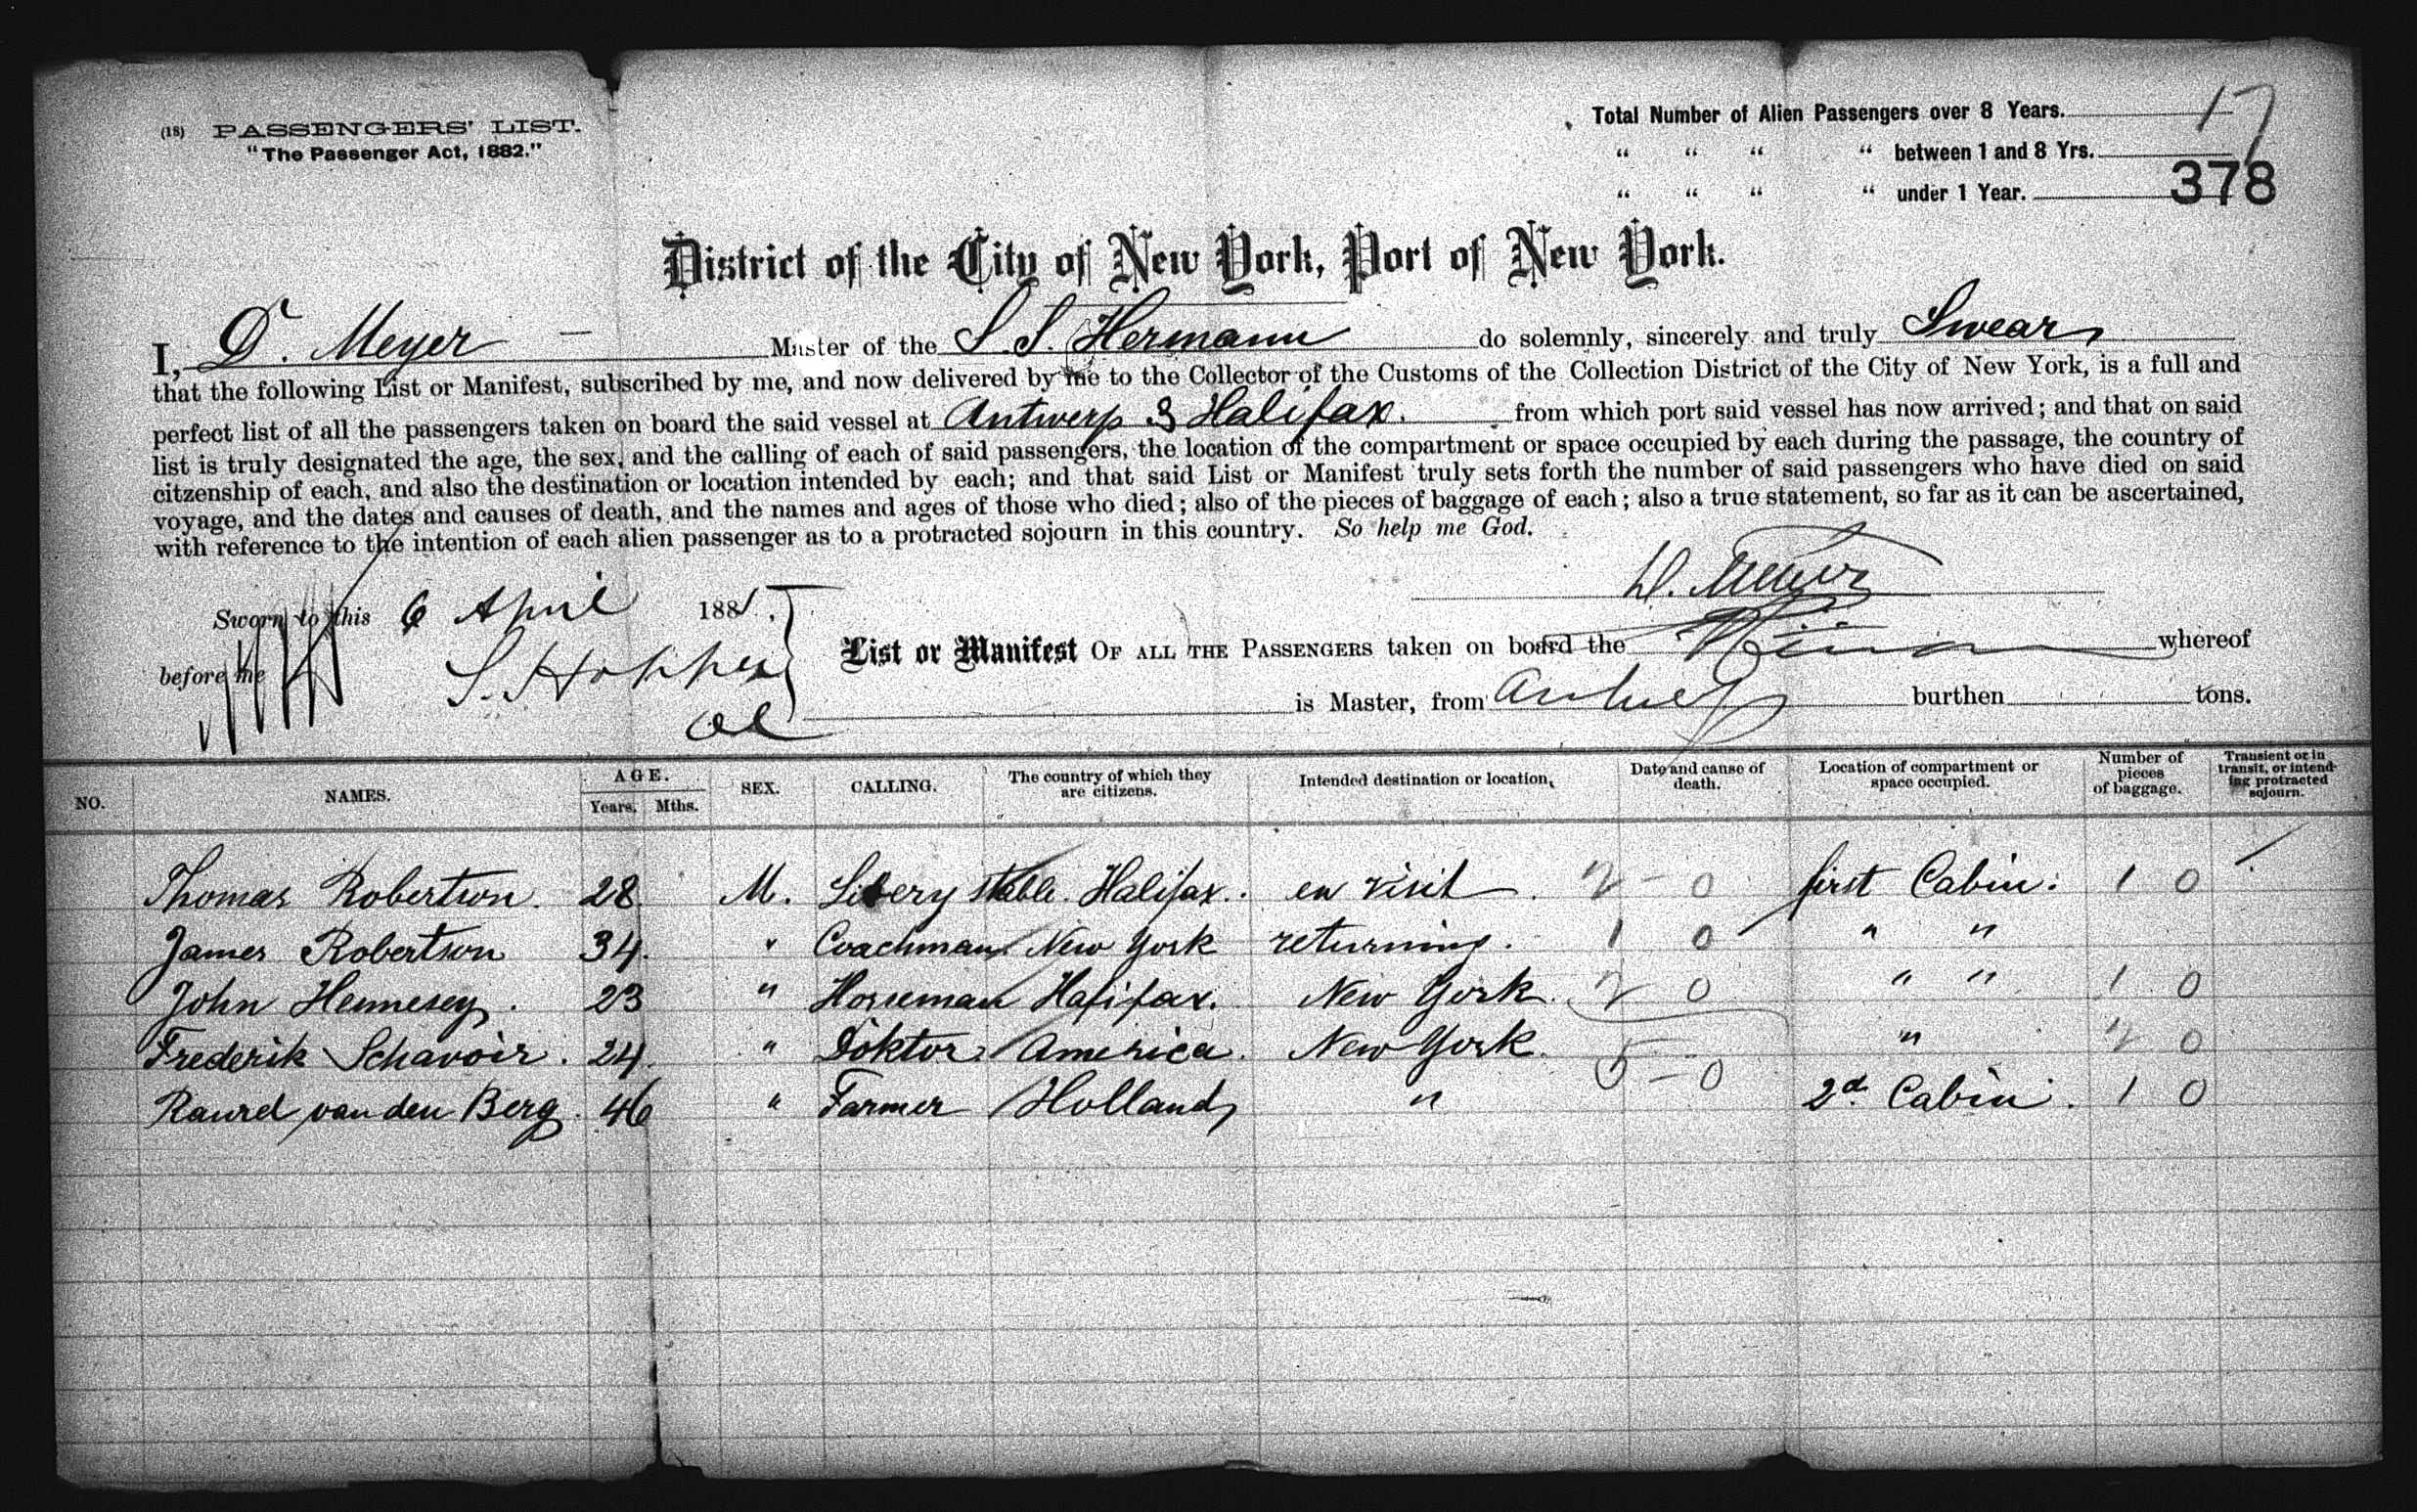 (18) PASSENGERS' LIST.
"The Passenger Act, 1882."
Total Number of Alien Passengers over 8 Years. 17
" " " " between 1 and 8 Yrs.
" " " " under 1 Year.
378
District of the City of New York, Port of New York.
I, D. Meyer — Master of the S.S. Hermann do solemnly, sincerely and truly Swear
that the following List or Manifest, subscribed by me, and now delivered by me to the Collector of the Customs of the Collection District of the City of New York, is a full and
perfect list of all the passengers taken on board the said vessel at Antwerp & Halifax. from which port said vessel has now arrived; and that on said
list is truly designated the age, the sex, and the calling of each of said passengers, the location of the compartment or space occupied by each during the passage, the country of
citzenship of each, and also the destination or location intended by each; and that said List or Manifest truly sets forth the number of said passengers who have died on said
voyage, and the dates and causes of death, and the names and ages of those who died; also of the pieces of baggage of each; also a true statement, so far as it can be ascertained,
with reference to the intention of each alien passenger as to a protracted sojourn in this country. So help me God.
D. Meyer
Sworn to this 6 April 188
before me
List or Manifest OF ALL THE PASSENGERS taken on board the whereof
is Master, from burthen tons.
NO. NAMES. AGE. Years. Mths. SEX. CALLING. The country of which they are citizens. Intended destination or location. Date and cause of death. Location of compartment or space occupied. Number of pieces of baggage. Transient or in transit, or intending protracted sojourn.
Thomas Robertson. 28 M. Livery stable. Halifax. en visit. 2 - 0 first Cabin. 1 0 /
James Robertson 34. " Coachman New York returning. 1 0 " "
John Hennesey. 23 " Horseman Halifax. New York. 2 0 " " 1 0
Frederik Schavoir. 24. " Doktor America. New York. 5 - 0 " 2 0
van den Berg. 46 " Farmer Holland " 2d. Cabin. 1 0